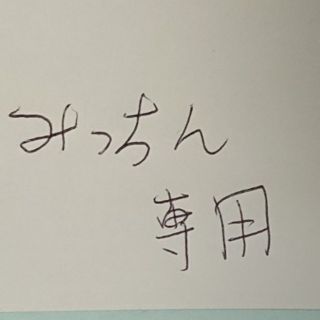 みっちん
専用